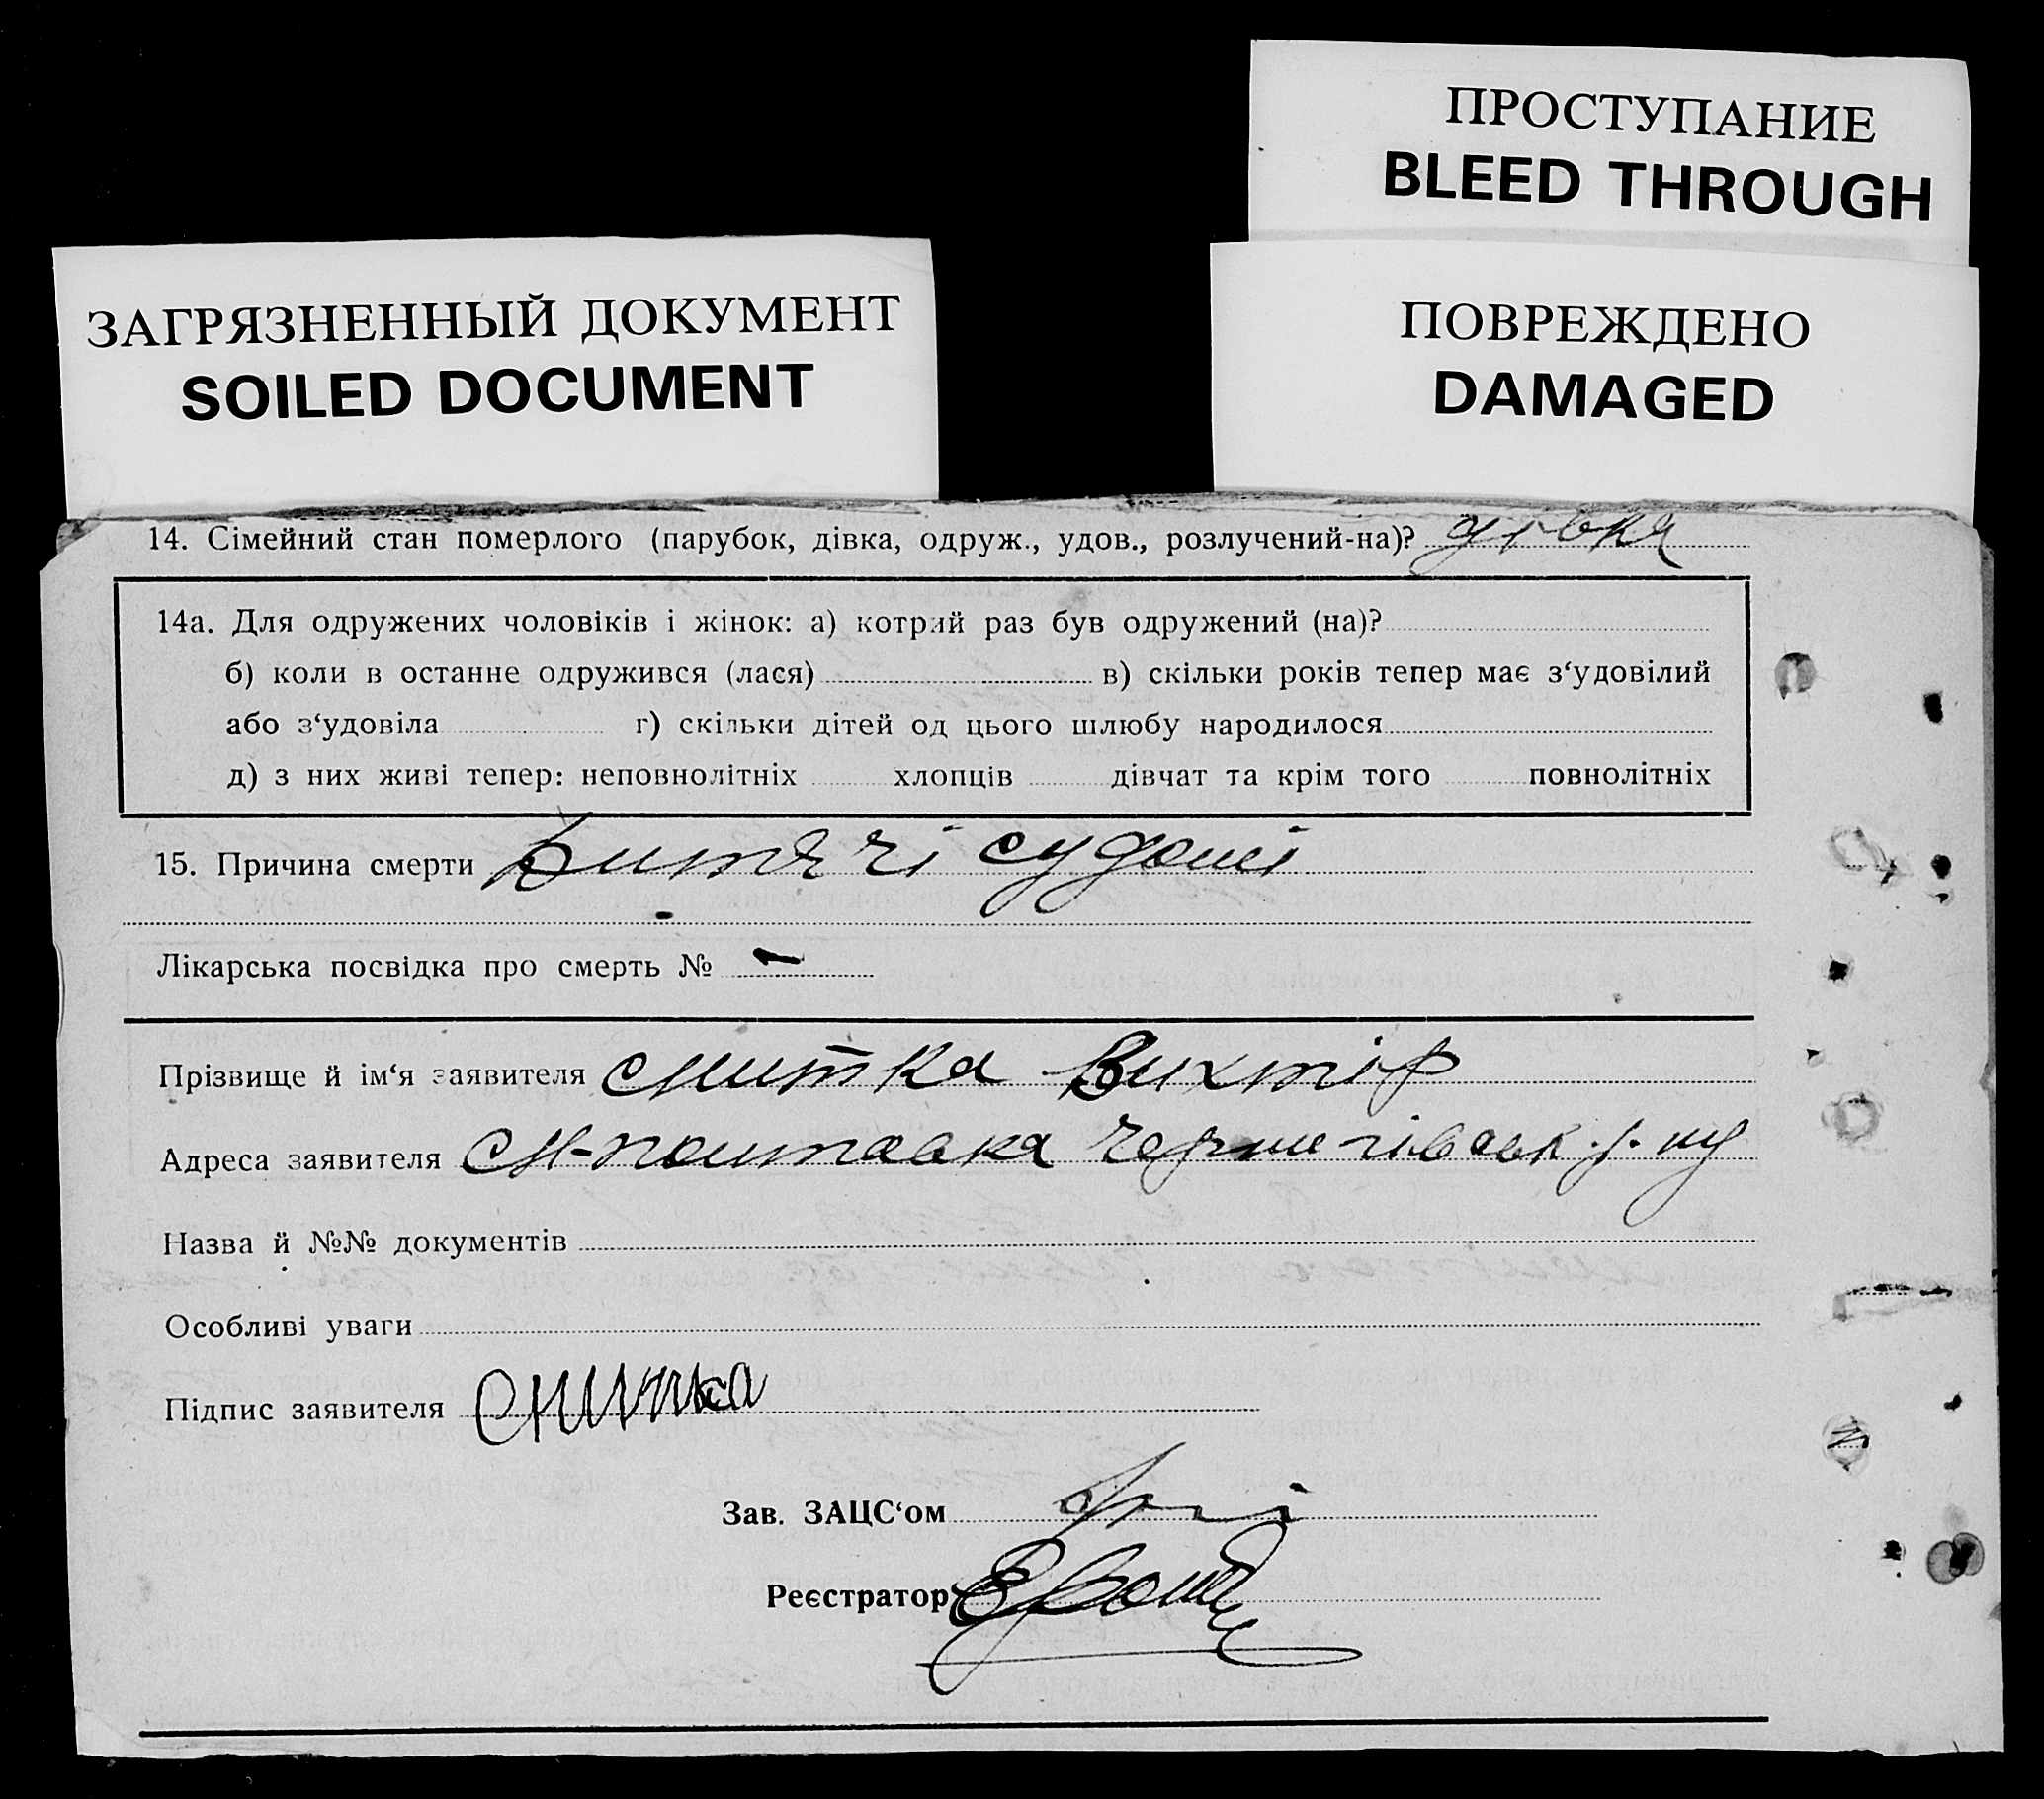 ПРОСТУПАНИЕ
BLEED THROUGH
ЗАГРЯЗНЕННЫЙ ДОКУМЕНТ
SOILED DOCUMENT
ПОВРЕЖДЕНО
DAMAGED
14. Сімейний стан померлого (парубок, дівка, одруж., удов., розлучений-на)? дівка
14а. Для одружених чоловіків і жінок: а) котрий раз був одружений (на)?
б) коли в останнє одружився (лася) в) скільки років тепер має з‘удовілий
або з‘удовіла г) скільки дітей од цього шлюбу народилося
д) з них живі тепер: неповнолітніх хлопців дівчат та крім того повнолітніх
15. Причина смерти Дитячі судоми
Лікарська посвідка про смерть № -
Прізвище й ім‘я заявителя Снитка Вихтір
Адреса заявителя
Назва й №№ документів
Особливі уваги
Підпис заявителя Снитка
Зав. ЗАЦС‘ом
Реєстратор